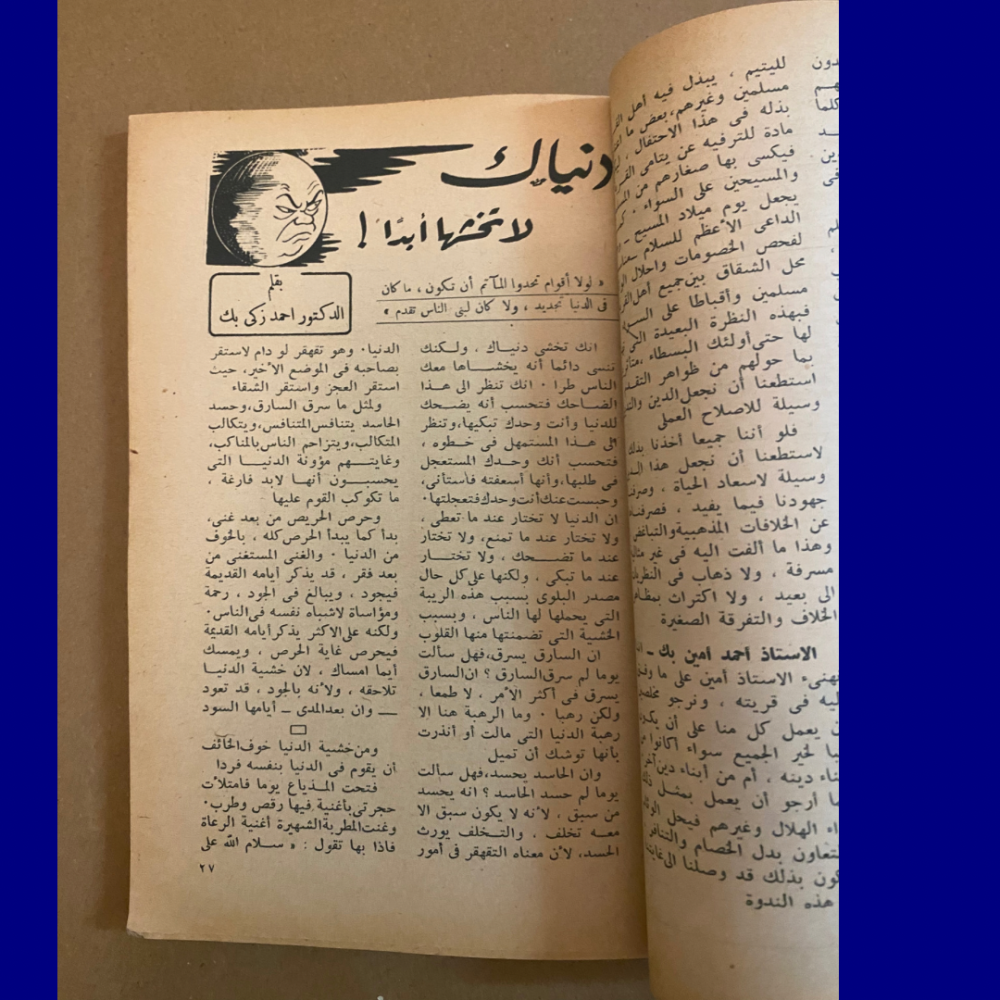 دنياك
لا تخشها أبدًا !
بقلم
الدكتور احمد زكى بك
« لولا أقوام تحدوا المآتم أن تكون ، ما كان
فى الدنيا تجديد ، ولا كان لبنى الناس تقدم »
انك تخشى دنياك ، ولكنك
تنسى دائما أنه يخشــاها معك
الناس طرا · انك تنظر الى هــذا
الضاحك فتحسب أنه يضــحك
للدنيا وأنت وحدك تبكيها،وتنظر
الى هــذا المستمهل فى خطوه ،
فتحسب أنك وحدك المستعجل
فى طلبها،وأنها أسعفته فاستأنى،
وحبست عنك أنت وحدك فتعجلتها·
ان الدنيا لا تختار عند ما تعطى ،
ولا تختار عند ما تمنع، ولا تختار
عند ما تضــحك ، ولا تختــار
عند ما تبكى ، ولكنها على كل حال
مصدر البلوى بسبب هذه الريبة
التى يحملها لها الناس ، وبسبب
الخشية التى تضمنتها منها القلوب
ان السارق يسرق،فهل سألت
يوما لم سرق السارق ؟ ان السارق
يسرق فى أكثر الأمر ، لا طمعا ،
ولكن رهبا · وما الرهبة هنا الا
رهبة الدنيا التى مالت أو أنذرت
بأنها توشك أن تميل
وان الحاسد يحسد،فهل سألت
يوما لم حسد الحاسد ؟ انه يحسد
من سبق ، لأنه لا يكون سبق الا
معــه تخلف ، والتخلف يورث
الحسد، لأن معناه التقهقر فى أمور
الدنيا· وهو تقهقر لو دام لاستقر
بصاحبه فى الموضع الأخير، حيث
استقر العجز واستقر الشقاء
ولمثل ما سرق السارق،وحسد
الحاسد يتنافس المتنافس،ويتكالب
المتكالب،ويتزاحم الناس بالمناكب،
وغايتــهم مؤونة الدنيــا التى
يحسبــون أنها لابد فارغة ،
ما تكوكب القوم عليها
وحرص الحريص من بعد غنى،
بدأ كما يبدأ الحرص كله ، بالخوف
من الدنيا · والغنى المستغنى من
بعد فقر ، قد يذكر أيامه القديمة
فيجود ، ويبالغ فى الجود ، رحمة
ومؤاساة لاشباه نفسه فى الناس·
ولكنه على الاكثر يذكر أيامه القديمة
فيحرص غاية الحرص ، ويمسك
أيما امساك ، لان خشية الدنيــا
تلاحقه ، ولأنه بالجود ، قد تعود
ــ وان بعد المدى ــ أيامها السود
ومن خشية الدنيا خوف الخائف
أن يقوم فى الدنيا بنفسه فردا
فتحت المــذياع يوما فامتلأت
حجرتى بأغنية فيها رقص وطرب·
وغنت المطربة الشهيرة أغنية الرعاة
فاذا بها تقول : « ســلام الله على
٢٧
لليتيم ، يبذل فيه أهل
مسلمين وغيرهم،بعض ما
بذله فى هذا الاحتفال ،
مادة للترفيه عن يتامى
فيكسى بها صغارهم من
والمسيحيين على السواء ·
يجعل يوم ميلاد المسيح ــ
الداعى الأعظم للسلام
لفحص الخصومات واحلال
محل الشقاق بين جميع أهل
مسلمين وأقباطا على
فبهذه النظرة البعيدة التى
لها حتى أولئك البسطاء
بما حولهم من ظواهر
استطعنا أن نجعل الدين
وسيلة للاصلاح العملى
فلو أننا جميعا أخذنا بذلك
لاستطعنا أن نجعل هذا
وسيلة لاسعاد الحياة ، وصرفنا
جهودنا فيما يفيد ، فصرفنا
عن الخلافات المذهبية والتباغض
وهذا ما ألفت اليه فى غير
مسرفة ، ولا ذهاب فى
الى بعيد ، ولا اكتراث بمظاهر
الخلاف والتفرقة الصغيرة
الاستاذ أحمد أمين بك ــ
نهنىء الاستاذ أمين على ما وفق
اليه فى قريته ، ونرجو
أن يعمل كل منا على أن
لخير الجميع سواء أكانوا
دينه ، أم من أبناء دين
أرجو أن يعمل بمثل
الهلال وغيرهم فيحل
التعاون بدل الخصام والتنافر
بذلك قد وصلنا الى
هذه الندوة